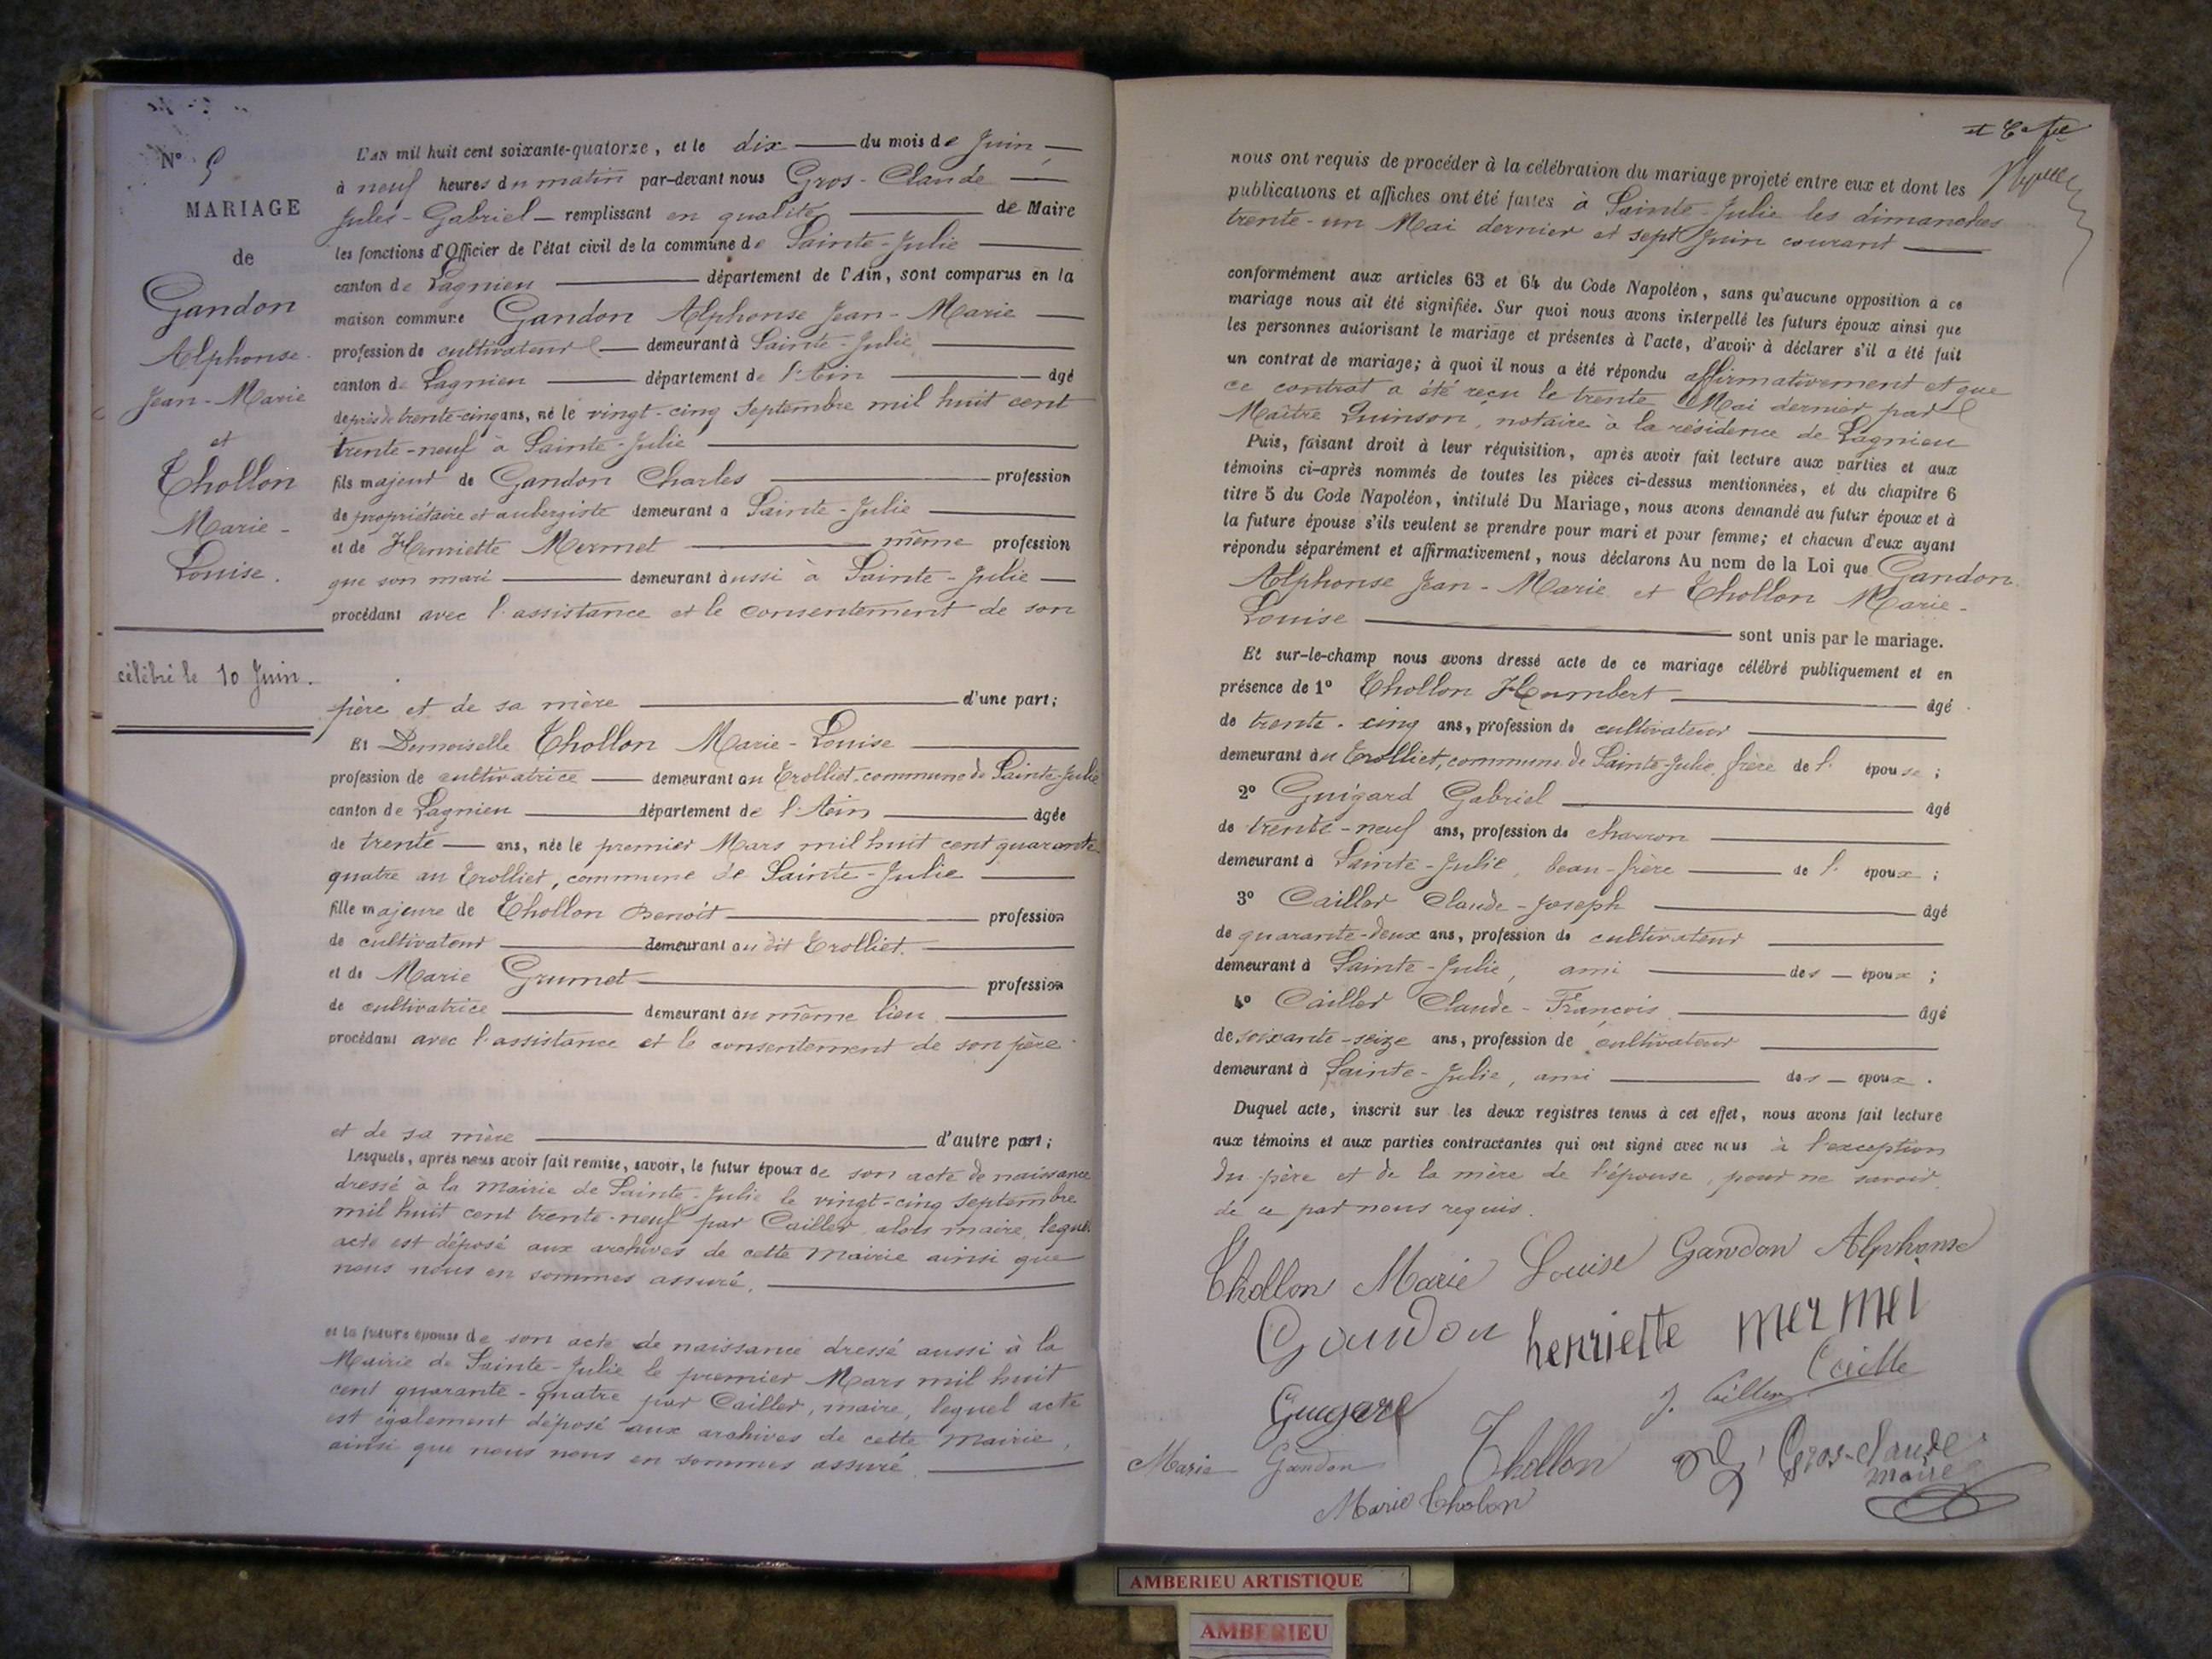 N° 5
MARIAGE
de
Gandon
Alphonse
Jean-Marie
et
Thollon
Marie-
Louise.
célébré le 10 Juin.
L'AN mil huit cent soixante-quatorze, et le dix du mois de Juin
à neuf heures du matin par-devant nous Gros-Claude
Jules-Gabriel remplissant en qualité de Maire
les fonctions d'Officier de l'état civil de la commune de Sainte-Julie
canton de Lagnieu département de l'Ain, sont comparus en la
maison commune Gandon Alphonse Jean-Marie
profession de cultivateur demeurant à Sainte-Julie
canton de Lagnieu département de l'Ain âgé
de près de trente-cinq ans, né le vingt-cinq Septembre mil huit cent
trente-neuf à Sainte-Julie
fils majeur de Gandon Charles profession
de propriétaire et aubergiste demeurant à Sainte-Julie
et de Henriette Mermet même profession
que son mari demeurant aussi à Sainte-Julie
procédant avec l'assistance et le consentement de son
père et de sa mère d'une part;
Et Demoiselle Thollon Marie-Louise
profession de cultivatrice demeurant au Trolliet, commune de Sainte-Julie
canton de Lagnieu département de l'Ain âgée
de trente ans, née le premier Mars mil huit cent quarante-
quatre au Trolliet, commune de Sainte-Julie
fille majeure de Thollon Benoît profession
de cultivateur demeurant au dit Trolliet.
et de Marie Grumet profession
de cultivatrice demeurant au même lieu
procédant avec l'assistance et le consentement de son père
et de sa mère d'autre part;
Lesquels, après nous avoir fait remise, savoir, le futur époux de son acte de naissance
dressé à la Mairie de Sainte-Julie le vingt-cinq Septembre
mil huit cent trente-neuf par Cailler alors maire, lequel
acte est déposé aux archives de cette Mairie ainsi que
nous nous en sommes assuré.
et la future épouse de son acte de naissance dressé aussi à la
Mairie de Sainte-Julie le premier Mars mil huit
cent quarante-quatre par Cailler, maire, lequel acte
est également déposé aux archives de cette Mairie,
ainsi que nous nous en sommes assuré.
nous ont requis de procéder à la célébration du mariage projeté entre eux et dont les
publications et affiches ont été faites à Sainte-Julie les dimanches
trente-un Mai dernier et sept Juin courant
conformément aux articles 63 et 64 du Code Napoléon, sans qu'aucune opposition à ce
mariage nous ait été signifiée. Sur quoi nous avons interpellé les futurs époux ainsi que
les personnes autorisant le mariage et présentes à l'acte, d'avoir à déclarer s'il a été fait
un contrat de mariage; à quoi il nous a été répondu affirmativement et que
ce contrat a été reçu le trente Mai dernier par
Maître Quinson, notaire à la résidence de Lagnieu
Puis, faisant droit à leur réquisition, après avoir fait lecture aux parties et aux
témoins ci-après nommés de toutes les pièces ci-dessus mentionnées, et du chapitre 6
titre 5 du Code Napoléon, intitulé Du Mariage, nous avons demandé au futur époux et à
la future épouse s'ils veulent se prendre pour mari et pour femme; et chacun d'eux ayant
répondu séparément et affirmativement, nous déclarons Au nom de la Loi que Gandon
Alphonse Jean-Marie et Thollon Marie-
Louise sont unis par le mariage.
Et sur-le-champ nous avons dressé acte de ce mariage célébré publiquement et en
présence de 1° Thollon Humbert âgé
de trente-cinq ans, profession de cultivateur
demeurant au Trolliet, commune de Sainte-Julie, frère de l'épouse;
2° Guigard Gabriel âgé
de trente-neuf ans, profession de charron
demeurant à Sainte-Julie, beau-frère de l'époux;
3° Cailler Claude-Joseph âgé
de quarante-deux ans, profession de cultivateur
demeurant à Sainte-Julie, ami des époux;
4° Cailler Claude-François âgé
de soixante-seize ans, profession de cultivateur
demeurant à Sainte-Julie, ami des époux.
Duquel acte, inscrit sur les deux registres tenus à cet effet, nous avons fait lecture
aux témoins et aux parties contractantes qui ont signé avec nous à l'exception
du père et de la mère de l'épouse, pour ne savoir
de ce par nous requis.
Thollon Marie Louise Gandon Alphonse
Gandon henriette mermet
Cailler
Guigard J. Cailler
Marie Gandon Thollon Gros-Claude
maire
Marie Tholon
AMBERIEU ARTISTIQUE
AMBERIEU